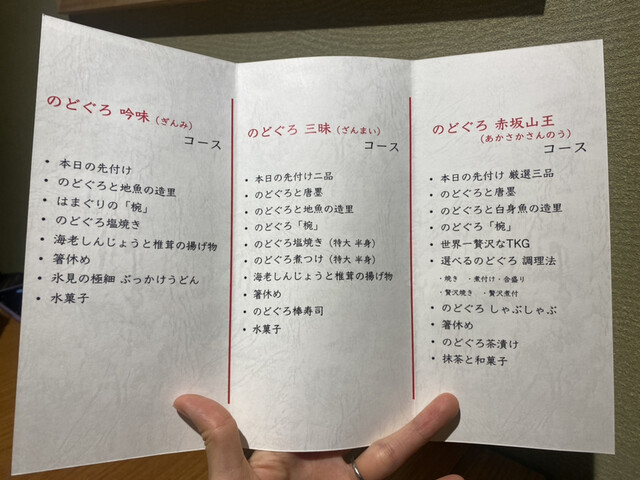 のどぐろ 吟味(ぎんみ)
コース
• 本日の先付け
• のどぐろと地魚の造里
• はまぐりの「椀」
• のどぐろ塩焼き
• 海老しんじょうと椎茸の揚げ物
• 箸休め
• 氷見の極細 ぶっかけうどん
• 水菓子
のどぐろ 三昧(ざんまい)
コース
• 本日の先付け二品
• のどぐろと唐墨
• のどぐろと地魚の造里
• のどぐろ「椀」
• のどぐろ塩焼き(特大 半身)
• のどぐろ煮つけ(特大 半身)
• 海老しんじょうと椎茸の揚げ物
• 箸休め
• のどぐろ棒寿司
• 水菓子
のどぐろ 赤坂山王
(あかさかさんのう)
コース
• 本日の先付け 厳選三品
• のどぐろと唐墨
• のどぐろと白身魚の造里
• のどぐろ「椀」
• 世界一贅沢なTKG
• 選べるのどぐろ 調理法
・焼き ・煮付け・合盛り
・贅沢焼き ・贅沢煮付
• のどぐろ しゃぶしゃぶ
• 箸休め
• のどぐろ茶漬け
• 抹茶と和菓子